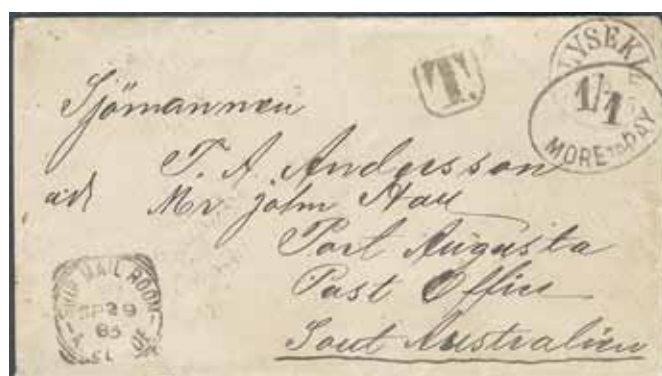 LYSEKI
T.
1/1
MORE TO PAY
Sjömannen
T. A. Andersson
adr Mr john Hall
Port Augusta
Post Office
Sout Australien
SHIP MAIL ROOM
SP 29